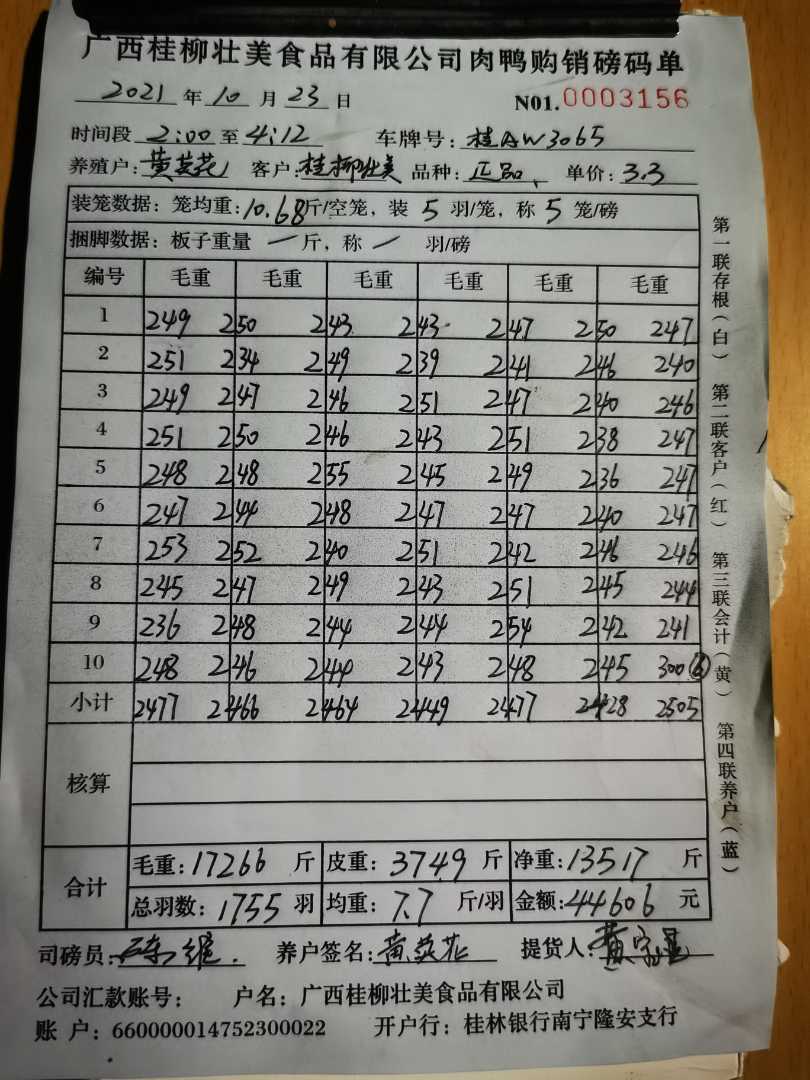 广西桂柳壮美食品有限公司肉鸭购销磅码单
2021 年 10 月 23 日 N01.0003156
时间段 2:00 至 4:12 车牌号: 桂AW3065
养殖户: 黄英花 客户: 桂柳壮美 品种: 正品、 单价: 3.3
装笼数据: 笼均重: 10.68斤/空笼, 装 5 羽/笼, 称 5 笼/磅
捆脚数据: 板子重量 一 斤, 称 一 羽/磅
编号 毛重 毛重 毛重 毛重 毛重 毛重
1 249 250 243 243 247 250 247
2 251 234 249 239 241 246 240
3 249 247 246 251 247 240 246
4 251 250 246 243 251 238 247
5 248 248 255 245 249 236 247
6 247 244 248 247 247 240 247
7 253 252 240 251 242 246 246
8 245 247 249 243 251 245 244
9 236 248 244 244 254 242 241
10 248 246 244 243 248 245 300
小计 2477 2466 2464 2449 2477 2428 2505
核算
合计 毛重: 17266 斤 皮重: 3749 斤 净重: 13517 斤
总羽数: 1755 羽 均重: 7.7 斤/羽 金额: 44606 元
司磅员: 养户签名: 黄英花 提货人: 黄
公司汇款账号: 户名: 广西桂柳壮美食品有限公司
账 户: 660000014752300022 开户行: 桂林银行南宁隆安支行
第一联存根(白) 第二联客户(红) 第三联会计(黄) 第四联养户(蓝)